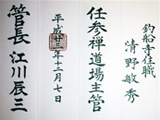 釣船寺住職
清野敏秀
任参禅道場主管
平成廿三年十二月七日
管長 江川辰三